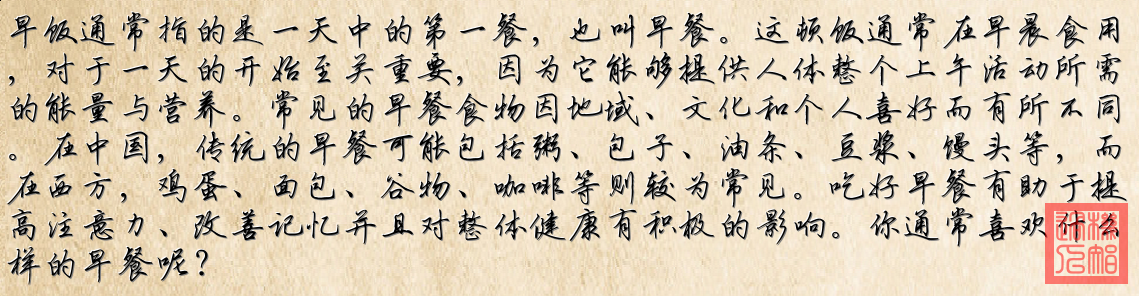 早饭通常指的是一天中的第一餐，也叫早餐。这顿饭通常在早晨食用
，对于一天的开始至关重要，因为它能够提供人体整个上午活动所需
的能量与营养。常见的早餐食物因地域、文化和个人喜好而有所不同
。在中国，传统的早餐可能包括粥、包子、油条、豆浆、馒头等，而
在西方，鸡蛋、面包、谷物、咖啡等则较为常见。吃好早餐有助于提
高注意力、改善记忆并且对整体健康有积极的影响。你通常喜欢什么
样的早餐呢？